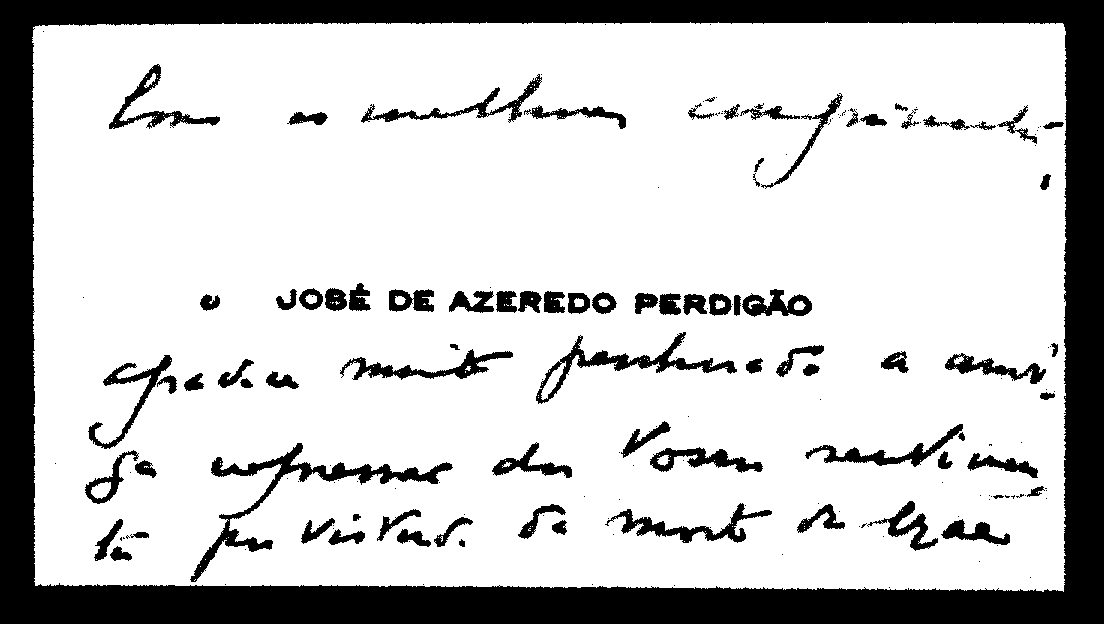 Com os melhores cumprimentos,
o JOSÉ DE AZEREDO PERDIGÃO
agradece muito penhorado a ami-
ga expressão dos Vossos sentimen-
tos por virtude da morte de